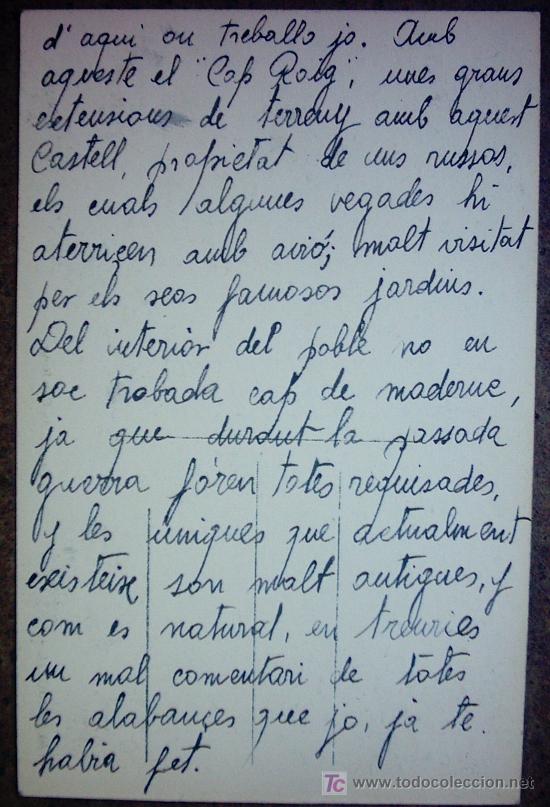 d' aqui on treballo jo. Amb
aqueste el "Cap Roig", unes grans
extensions de terreny amb aquest
Castell, propietat de uns russos,
els cuals algunes vegades hi
aterriçen amb avió; molt visitat
per els seos famosos jardins.
Del interior del poble no en
soc trobada cap de moderne,
ja que durant la passada
guerra fóren totes requisades,
y les uniques que actualment
existeixe son molt antigues, y
com es natural, en treuries
un mal comentari de totes
les alabançes que jo, ja te
habia fet.
TC www.todocoleccion.net